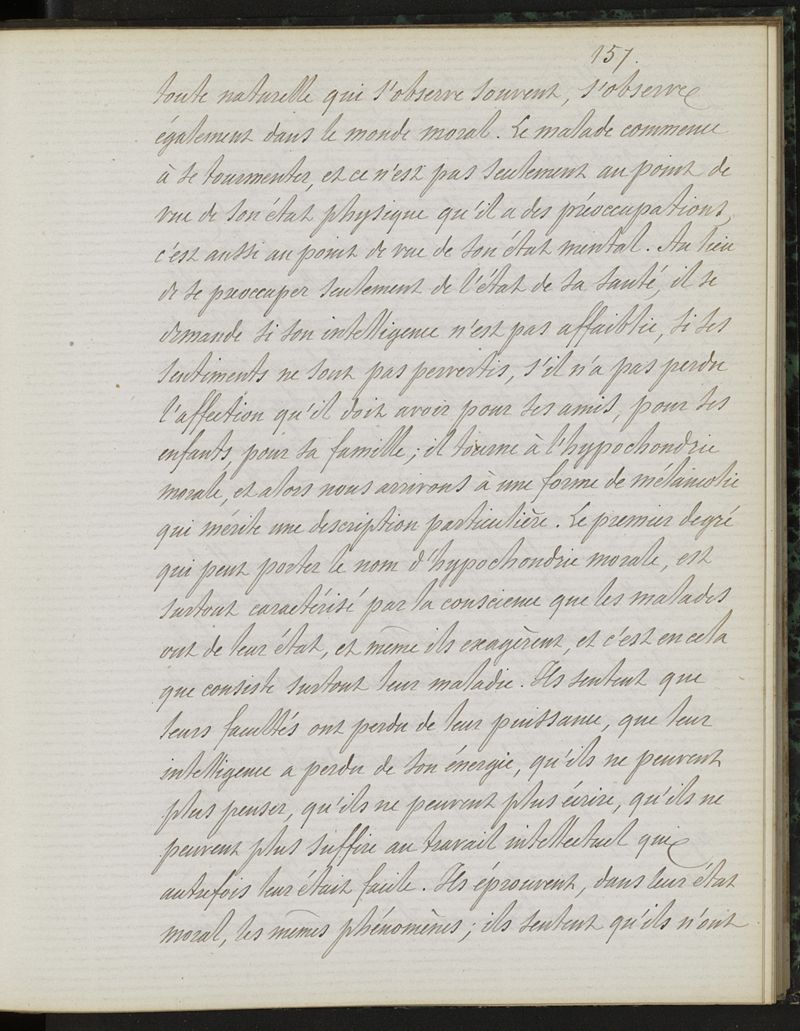 157.
toute naturelle qui s'observe souvent, s'observe
également dans le monde moral. Le malade commence
à se tourmenter, et ce n'est pas seulement au point de
vue de son état physique qu'il a des préoccupations,
c'est aussi au point de vue de son état mental. Au lieu
de se preoccuper seulement de l'état de sa santé, il se
demande si son intelligence n'est pas affaiblie, si ses
sentiments ne sont pas pervertis, s'il n'a pas perdu
l'affection qu'il doit avoir pour ses amis, pour ses
enfants, pour sa famille; il tourne à l'hypochondrie
morale, et alors nous arrivons à une forme de mélancolie
qui mérite une description particulière. Le premier degré
qui peut porter le nom d'hypochondrie morale, est
surtout caractérisé par la conscience que les malades
ont de leur état, et même ils exagèrent, et c'est en cela
que consiste surtout leur maladie. Ils sentent que
leurs facultés ont perdu de leur puissance, que leur
intelligence a perdu de son énergie, qu'ils ne peuvent
plus penser, qu'ils ne peuvent plus écrire, qu'ils ne
peuvent plus suffire au travail intellectuel qui
autrefois leur était facile. Ils éprouvent, dans leur état
moral, les mêmes phénomènes; ils sentent qu'ils n'ont